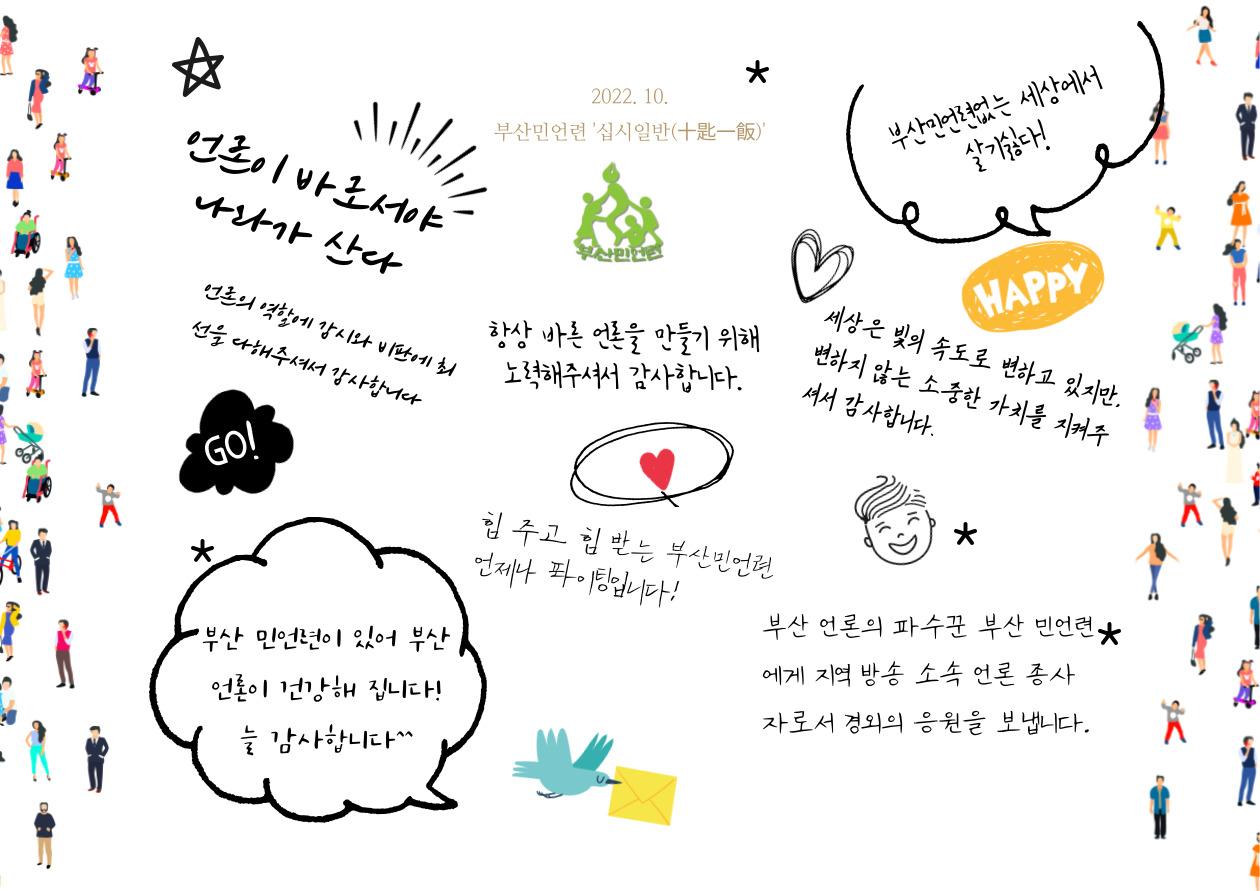 2022. 10.
부산민언련 '십시일반(十匙一飯)'
부산민언련
언론이 바로서야
나라가 산다
부산민언련없는 세상에서
살기싫다!
HAPPY
언론의 역할에 감시와 비판에 최
선을 다해주셔서 감사합니다
항상 바른 언론을 만들기 위해
노력해주셔서 감사합니다.
세상은 빛의 속도로 변하고 있지만,
변하지 않는 소중한 가치를 지켜주
셔서 감사합니다.
GO!
힘 주고 힘 받는 부산민언련
언제나 파이팅입니다!
부산 민언련이 있어 부산
언론이 건강해 집니다!
늘 감사합니다^^
부산 언론의 파수꾼 부산 민언련
에게 지역 방송 소속 언론 종사
자로서 경외의 응원을 보냅니다.